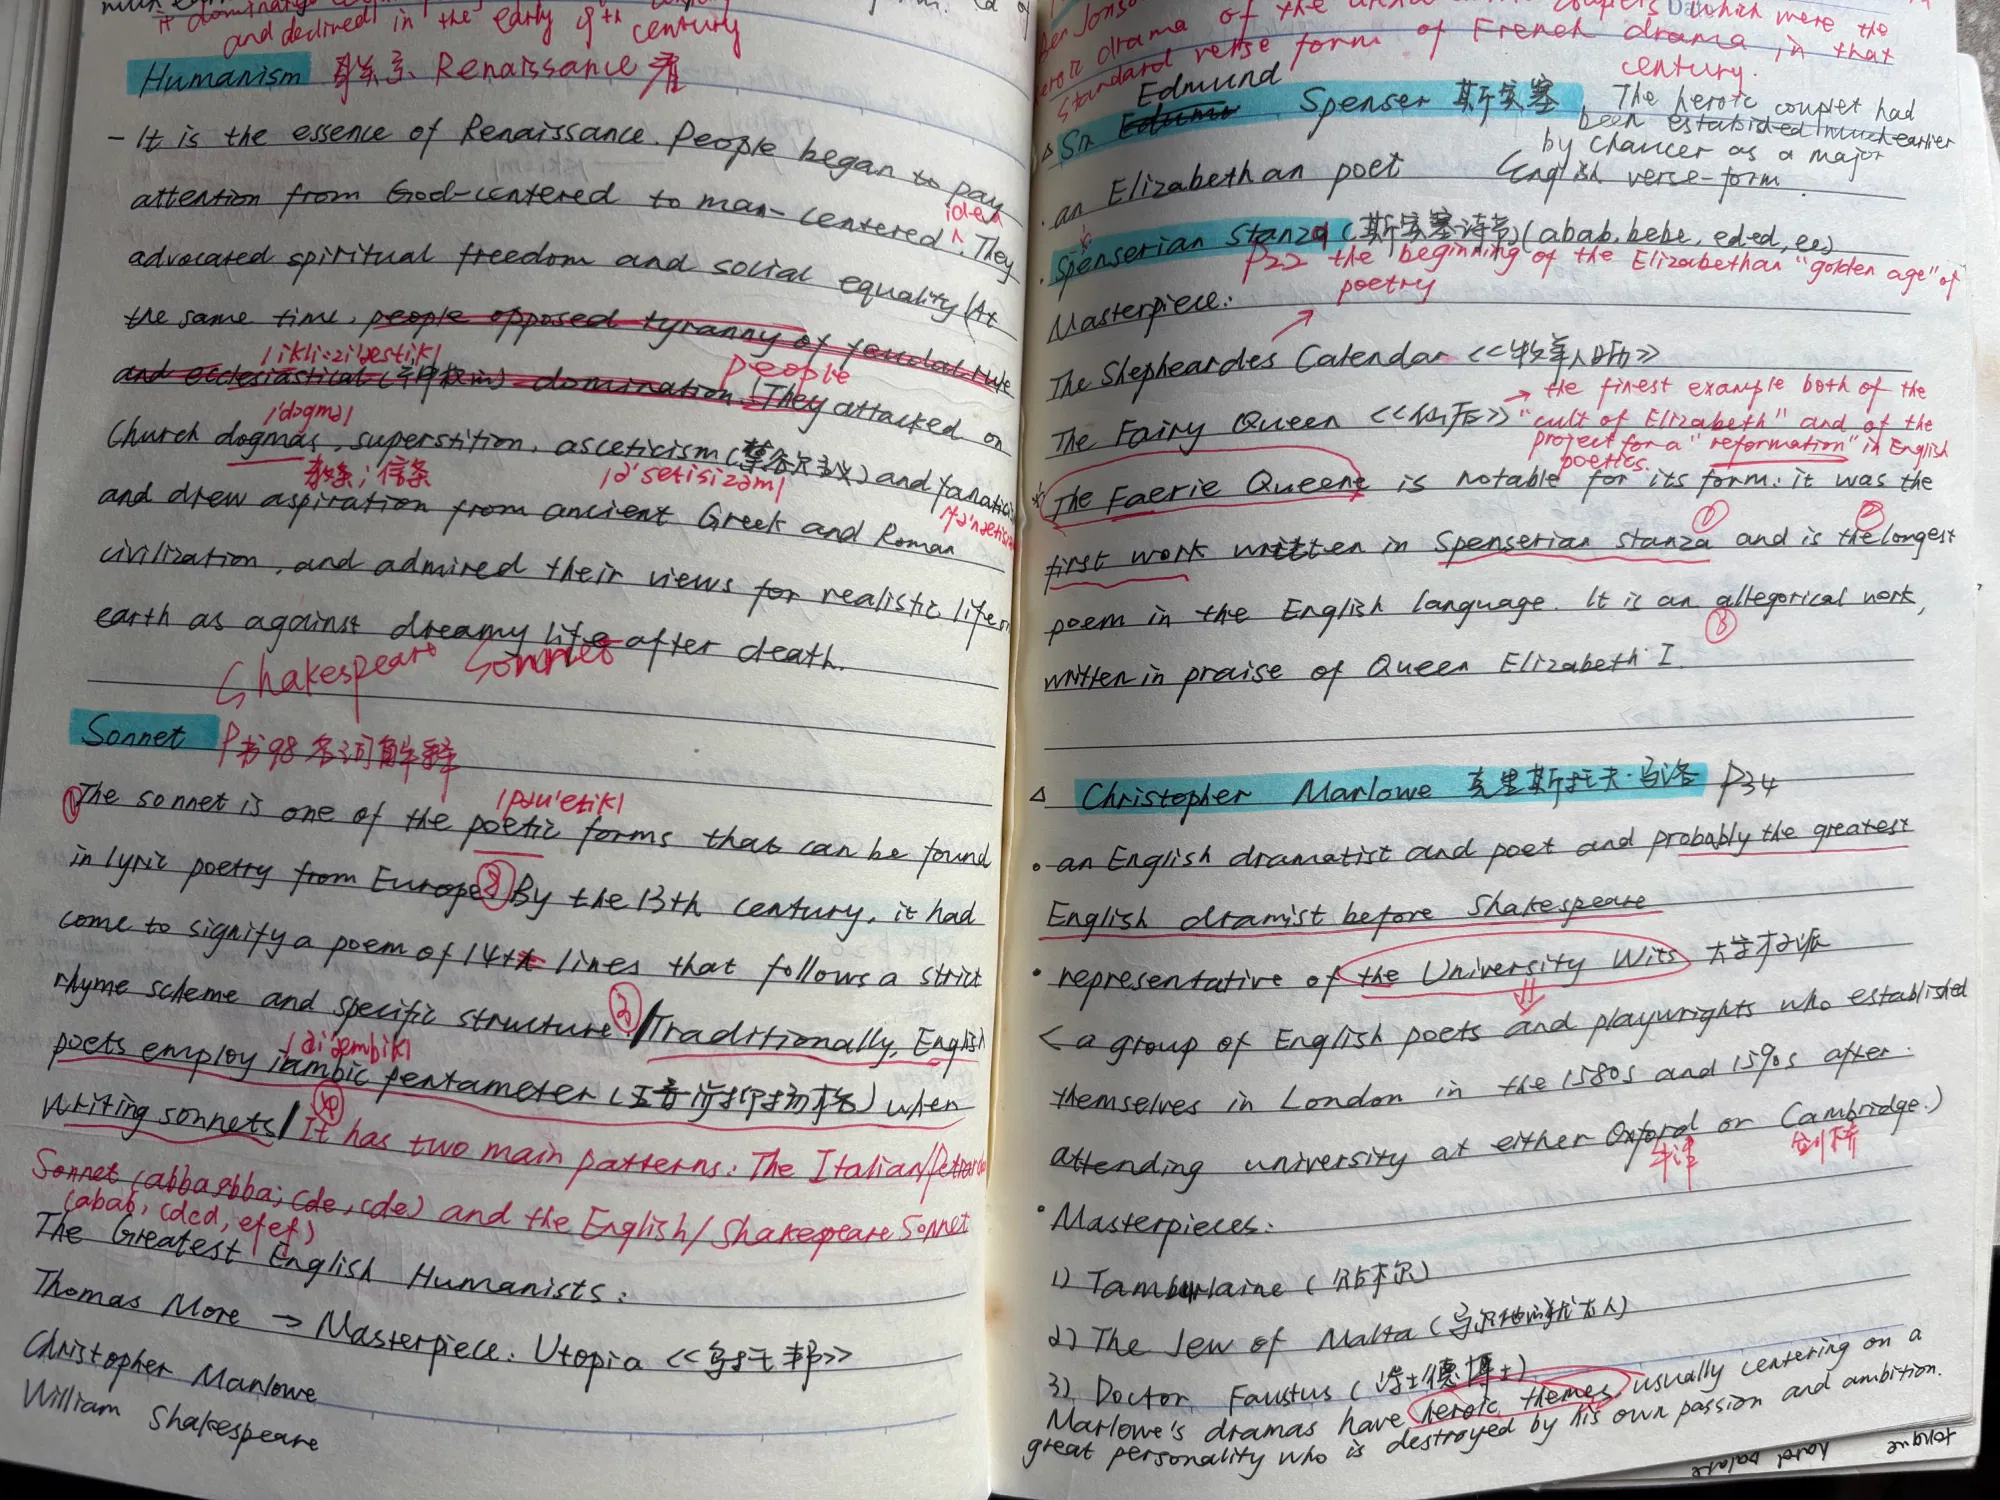 and declined in the early 19th century
Humanism 联系 Renaissance 看
- It is the essence of Renaissance. People began to pay
attention from God-centered to man-centered. They
idea
advocated spiritual freedom and social equality. At
the same time, people opposed tyranny of feudal rule
/ikli:zi'æstikl/
and ecclesiastical (宗神权的) domination. They attacked on
people
/'dɔgmə/
Church dogmas, superstition, asceticism (禁欲主义) and
教条;信条
/ə'setisizəm/
and drew aspiration from ancient Greek and Roman
civilization, and admired their views for realistic life on
earth as against dreamy life after death.
Shakespeare Sonnet
Sonnet P书98 名词解释
/pəu'etik/
① The sonnet is one of the poetic forms that can be found
in lyric poetry from Europe. ② By the 13th century, it had
come to signify a poem of 14 lines that follows a strict
rhyme scheme and specific structure. ③ / Traditionally, English
/ai'æmbik/
poets employ iambic pentameter (五音步抑扬格) when
writing sonnets / ④ It has two main patterns: The Italian/
Sonnet (abba abba; cde, cde) and the English/Shakespeare Sonnet
(abab, cdcd, efef)
The Greatest English Humanists:
Thomas More → Masterpiece: Utopia 《乌托邦》
Christopher Marlowe
William Shakespeare
heroic drama of the
couplets which were the
standard verse form of French drama in that
century.
Edmund
△ Sir Spenser 斯宾塞
The heroic couplet had
been established much earlier
by Chaucer as a major
English verse-form.
· an Elizabethan poet
· Spenserian Stanza (斯宾塞诗节) (abab, bebe, eded, ee)
P22 the beginning of the Elizabethan "golden age" of
poetry
Masterpiece:
The Shepheardes Calendar 《牧羊人日历》
→ the finest example both of the
The Fairy Queen 《仙后》 "cult of Elizabeth" and of the
project for a "reformation" in English
poetics.
The Faerie Queene is notable for its form: it was the
① ②
first work written in Spenserian stanza and is the longest
poem in the English language. It is an allegorical work,
③
written in praise of Queen Elizabeth I.
△ Christopher Marlowe 克里斯托夫·马洛 P34
· an English dramatist and poet and probably the greatest
English dramist before Shakespeare
· representative of the University Wits 大学才子派
< a group of English poets and playwrights who established
themselves in London in the 1580s and 1590s after
attending university at either Oxford or Cambridge.)
牛津 剑桥
· Masterpieces:
1) Tamburlaine (帖木尔)
2) The Jew of Malta (马尔他的犹太人)
3) Doctor Faustus (浮士德博士)
Marlowe's dramas have heroic themes, usually centering on a
great personality who is destroyed by his own passion and ambition.
tongue
hard palate